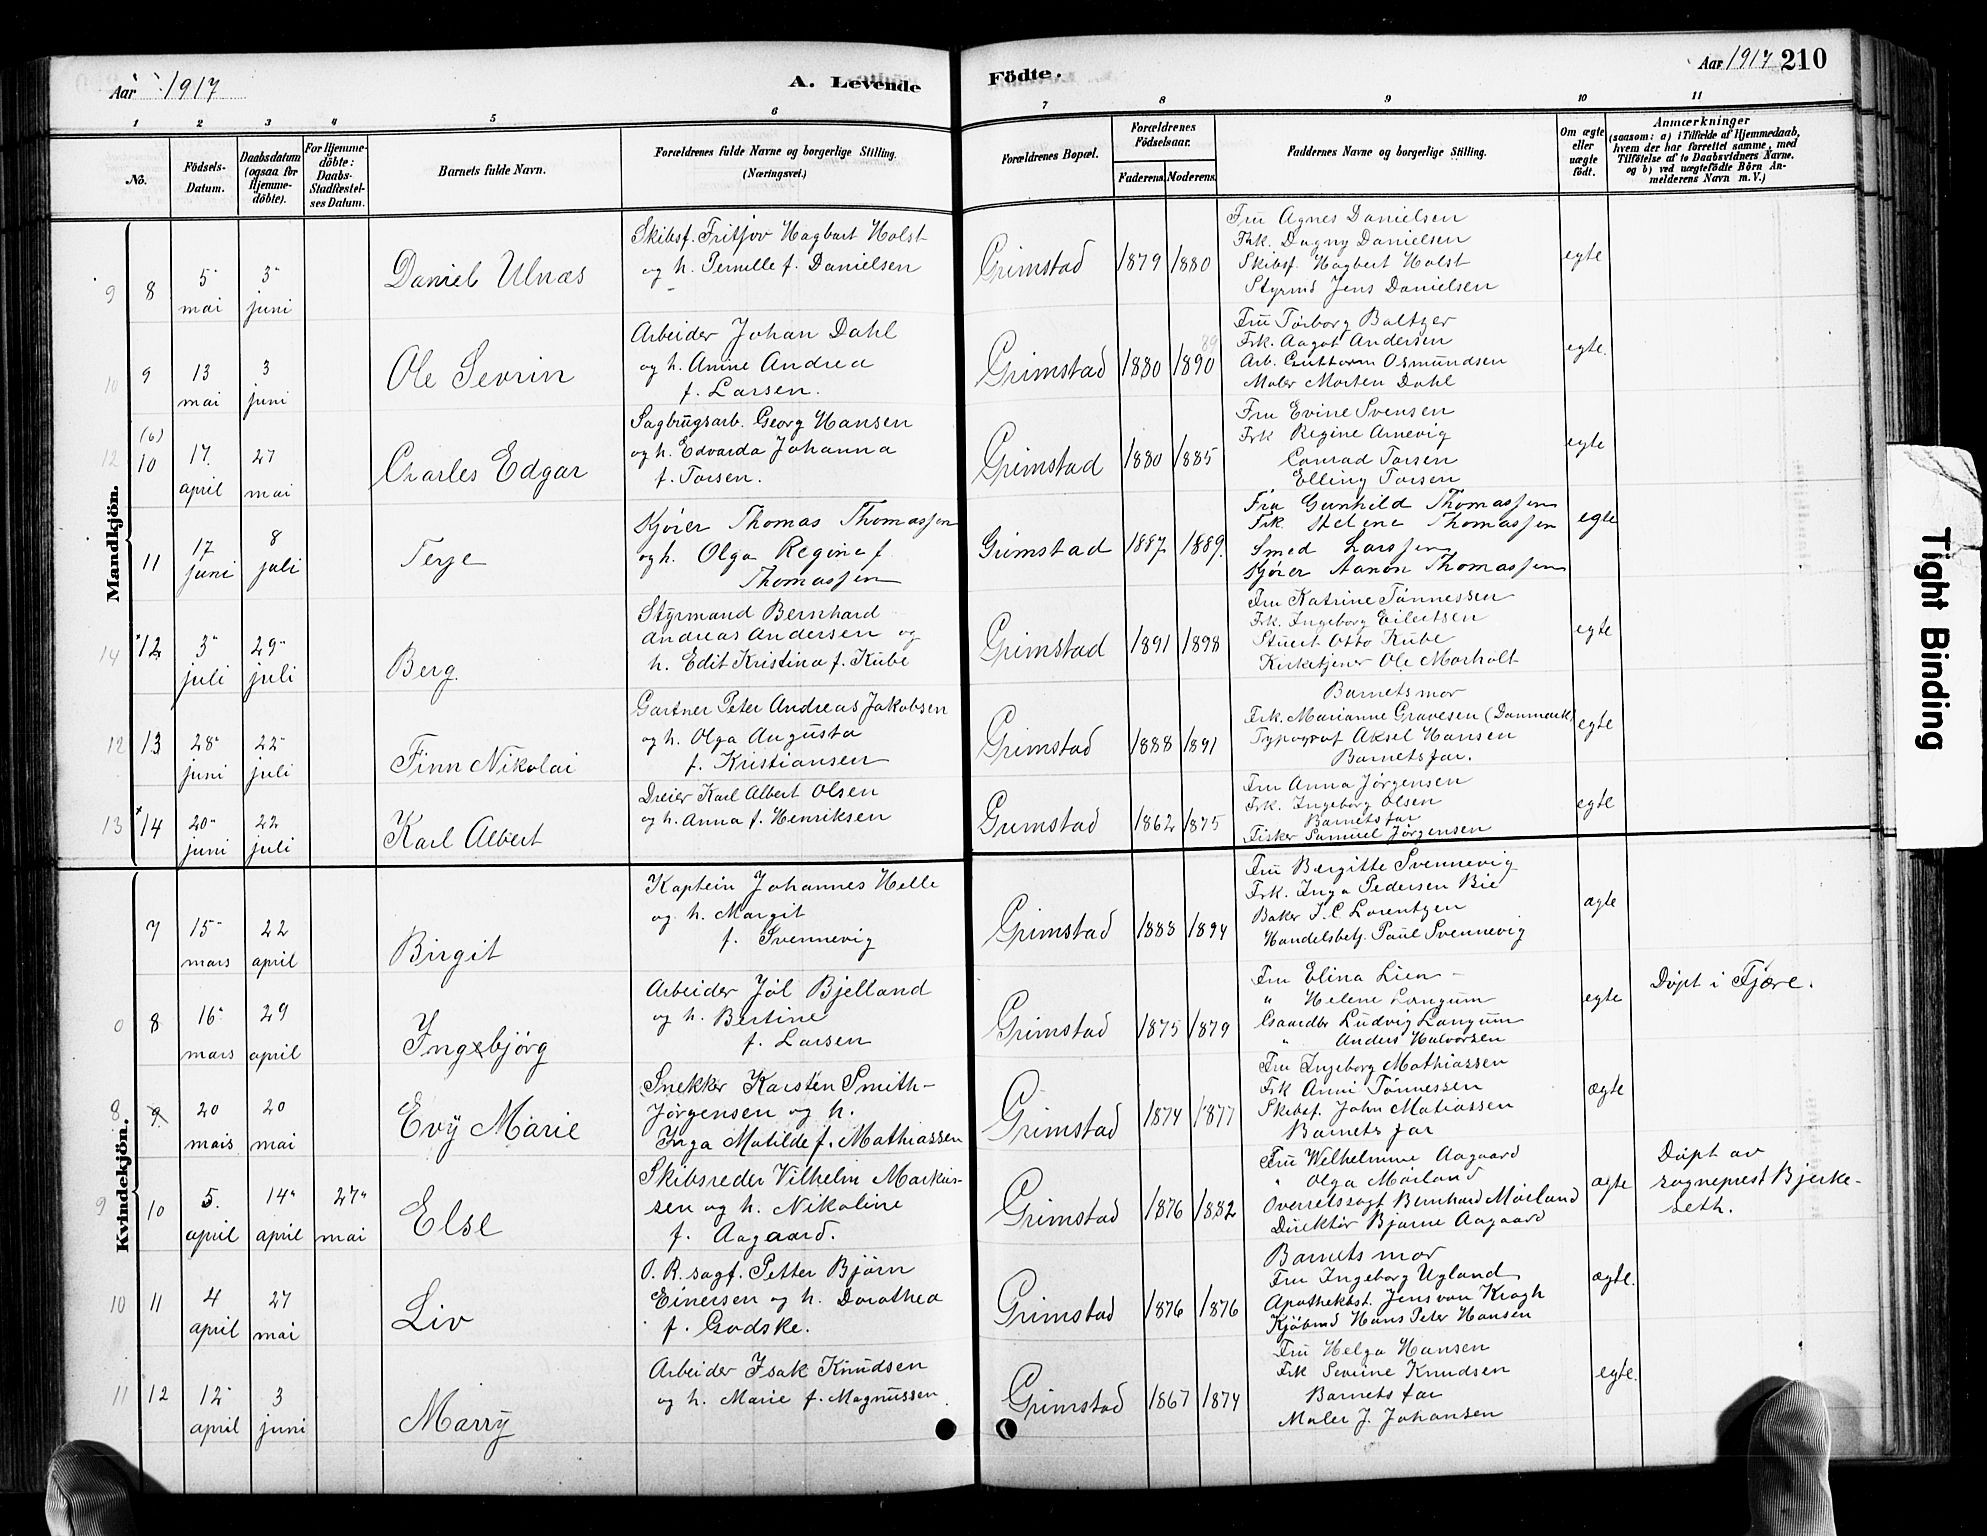 Aar 1917
A. Levende
Födte.
Aar 1917
210
1 2 3 4 5 6 7 8 9 10 11
No.
Födsels-Datum.
Daabsdatum (ogsaa for Hjemme-döbte).
For Hjemme-döbte: Daabs-Stadfæstelses Datum.
Barnets fulde Navn.
Forældrenes fulde Navne og borgerlige Stilling. (Næringsvei.)
Forældrenes Bopæl.
Forældrenes Födselsaar.
Faderens. Moderens.
Faddernes Navne og borgerlige Stilling.
Om ægte eller uægte födt.
Anmærkninger
(saasom: a) i Tilfælde af Hjemmedaab, hvem der har forrettet samme, med Tilföielse af to Daabsvidners Navne. og b) ved uægtefödte Börn Anmelderens Navn m. V.)
Mandkjön.
9 8 5 mai 3 juni
Daniel Ulnæs
Skibsf. Fritjov Hagbart Holst
og h. Pernille f. Danielsen
Grimstad 1879 1880
Fru Agnes Danielsen
Frk. Dagny Danielsen
Skibsf. Hagbert Holst
Styrmd Jens Danielsen
egte
10 9 13 mai 3 juni
Ole Sevrin
Arbeider Johan Dahl
og h. Anine Andrea
f. Larsen.
Grimstad 1880 1890 89
Fru Torborg Baltzer
Frk. Aagot Andersen
Arb. Guttorm Osmundsen
Maler Morten Dahl
egte.
12 (6) 10 17. april 27 mai
Charles Edgar
Sagbrugsarb. Georg Hansen
og h. Edvarda Johanna
f. Torsen.
Grimstad 1880 1885
Fru Evine Svensen
Frk Regine Arnevig
Conrad Torsen
Elling Torsen
egte
11 17 juni 8 juli
Terje
Kjører Thomas Thomassen
og h. Olga Regine f.
Thomassen
Grimstad 1887 1889.
Fru Gunhild Thomassen
Frk. Helene Thomassen
Smed Larssen
Kjører Aanon Thomassen
egte
14 12 3 juli 29 juli
Berg.
Styrmand Bernhard
Andreas Andersen og
h. Edit Kristina f. Kube
Grimstad 1891 1898
Fru Katrine Tønnessen
Frk. Ingeborg Eilertsen
Stuert Otto Kube
Kirketjener Ole Morholt
egte
12 13 28 juni 22 juli
Finn Nikolai
Gartner Peter Andreas Jakobsen
og h. Olga Augusta
f. Kristiansen
Grimstad 1888 1891
Barnets mor
Frk. Marianne Gravesen (Danmark)
Typograf Aksel Hansen
Barnets far.
egte
13 14 20 juni 22 juli
Karl Albert
Dreier Karl Albert Olsen
og h. Anna f. Henriksen
Grimstad 1862 1875
Fru Anna Jørgensen
Frk. Ingeborg Olsen
Barnets far
Fisker Samuel Jørgensen
egte
Kvindekjön.
7 15 mars 22 april
Birgit
Kaptein Johannes Helle
og h. Margit
f. Svennevig
Grimstad 1883 1894
Fru Bergitte Svennevig
Frk. Inga Pedersen Bie
Baker J. C. Lorentzen
Handelsbetj. Paul Svennevig
ægte
8 16 mars 29 april
Ingebjørg
Arbeider Jöl Bjelland
og h. Bertine
f. Larsen
Grimstad 1875 1879
Fru Elina Lien
" Helene Langum
Gaardbr Ludvig Langum
" Anders Halvorsen
egte
Døpt i Fjære.
8 9 20 mars 20 mai
Evÿ Marie
Snekker Karsten Smith-
Jørgensen og h.
Inga Matilde f. Mathiassen
Grimstad 1874 1877
Fru Ingeborg Mathiassen
Frk Anni Tønnessen
Skibsf. John Matiassen
Barnets far
ægte
9 10 5. april 14 april 27 mai
Else
Skibsreder Vilhelm Markus-
sen og h. Nikoline
f. Aagaard.
Grimstad 1876 1882
Fru Wilhelmine Aagaard
" Olga Mørland
Overretssagf Bernhard Mørland
Direktør Bjarne Aagaard
ægte
Døpt av
sogneprest Bjerke-
seth.
10 11 4 april 27 mai
Liv
O. R. sagf. Petter Bjørn
Einersen og h. Dorothea
f. Godske.
Grimstad 1876 1876
Barnets mor
Fru Ingeborg Ugland
Apothekbst. Jens von Krogh
Kjøbmd Hans Peter Hansen
ægte.
11 12 12 april 3 juni
Marrÿ
Arbeider Isak Knudsen
og h. Marie f. Magnussen
Grimstad 1867 1874
Fru Helga Hansen
Frk Severine Knudsen
Barnets far
Maler J. Johansen
egte.
Tight Binding